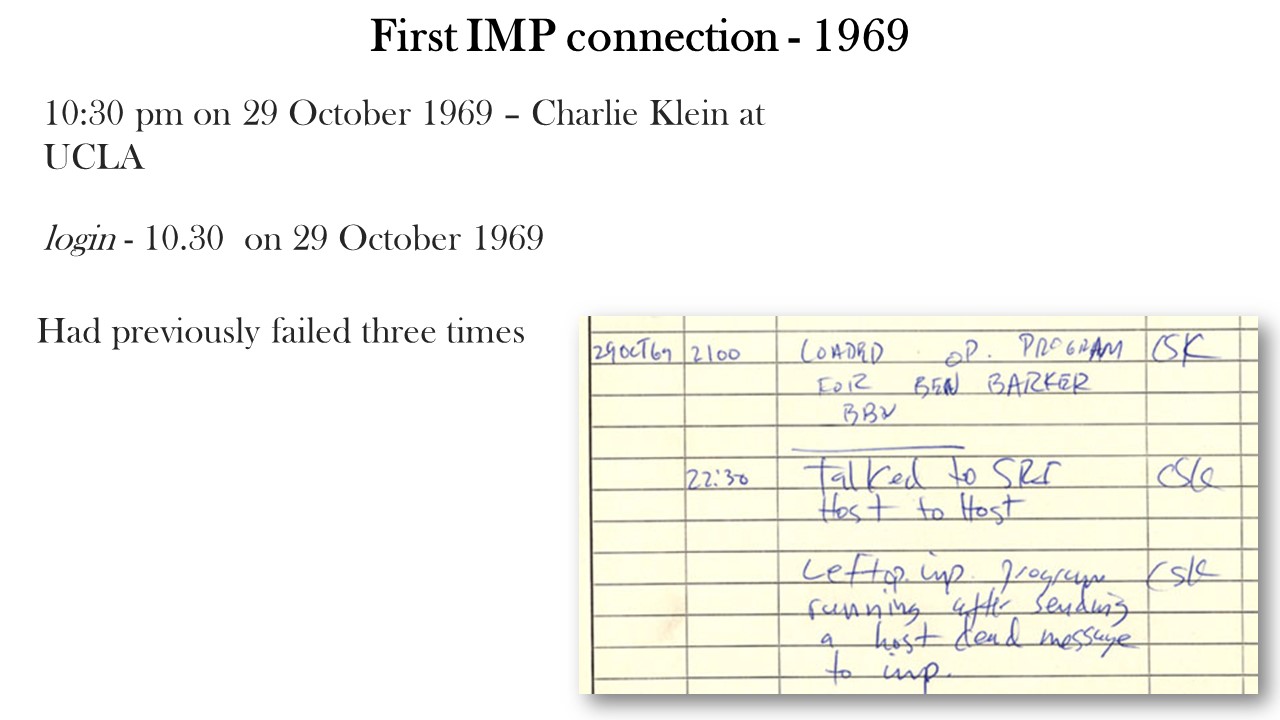 First IMP connection - 1969
10:30 pm on 29 October 1969 – Charlie Klein at
UCLA
login - 10.30 on 29 October 1969
Had previously failed three times
29 OCT 69 2100 LOADED OP. PROGRAM CSK
FOR BEN BARKER
BBN
22:30 Talked to SRI CSK
Host to Host
Left op. imp. program CSK
running after sending
a host dead message
to imp.